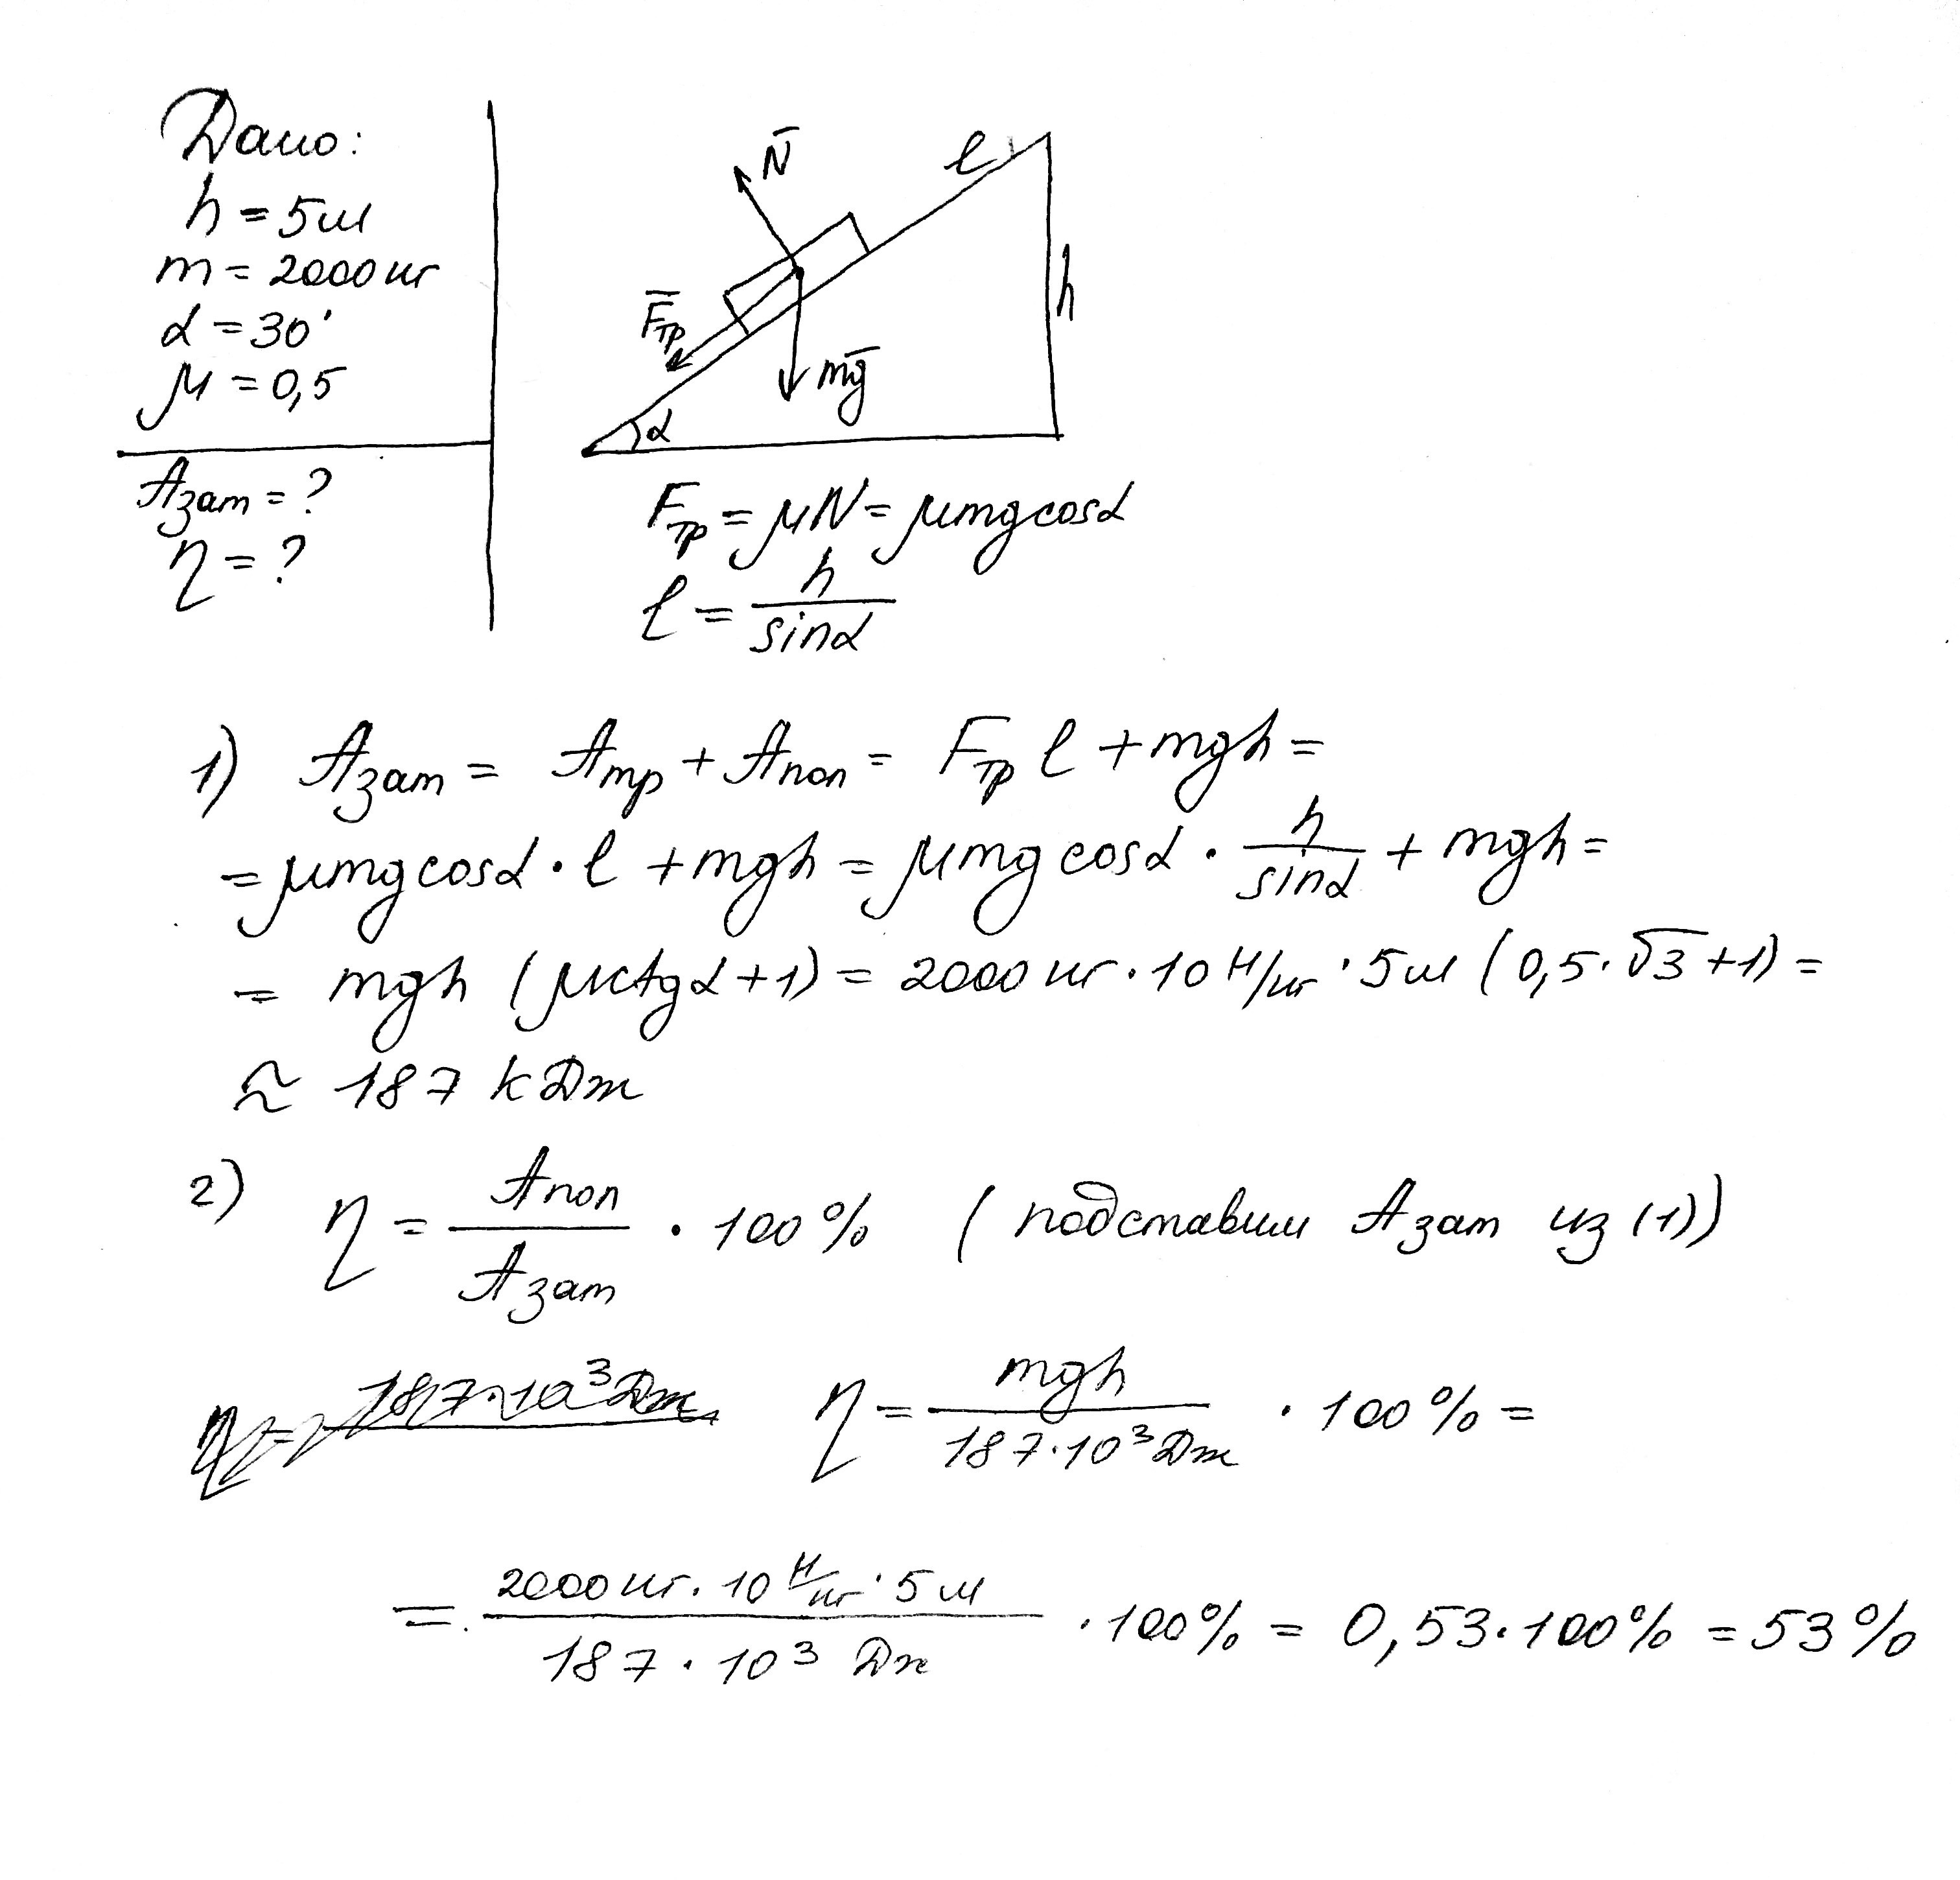 Дано:
h = 5м
m = 2000 кг
α = 30°
μ = 0,5
Aзат = ?
η = ?
N̄
l
h
F̄тр
mḡ
α
Fтр = μN = μmgcosα
l = h/sinα
1) Aзат = Aтр + Aпол = Fтр l + mgh =
= μmgcosα · l + mgh = μmg cosα · h/sinα + mgh =
= mgh (μctgα + 1) = 2000 кг · 10 Н/кг · 5м (0,5 · √3 + 1) =
≈ 187 кДж
2) η = Aпол/Aзат · 100% (подставим Aзат из (1))
η = 187·10³Дж
η = mgh/187·10³Дж · 100% =
= 2000 кг · 10 Н/кг · 5 м/187 · 10³ Дж · 100% = 0,53 · 100% = 53%